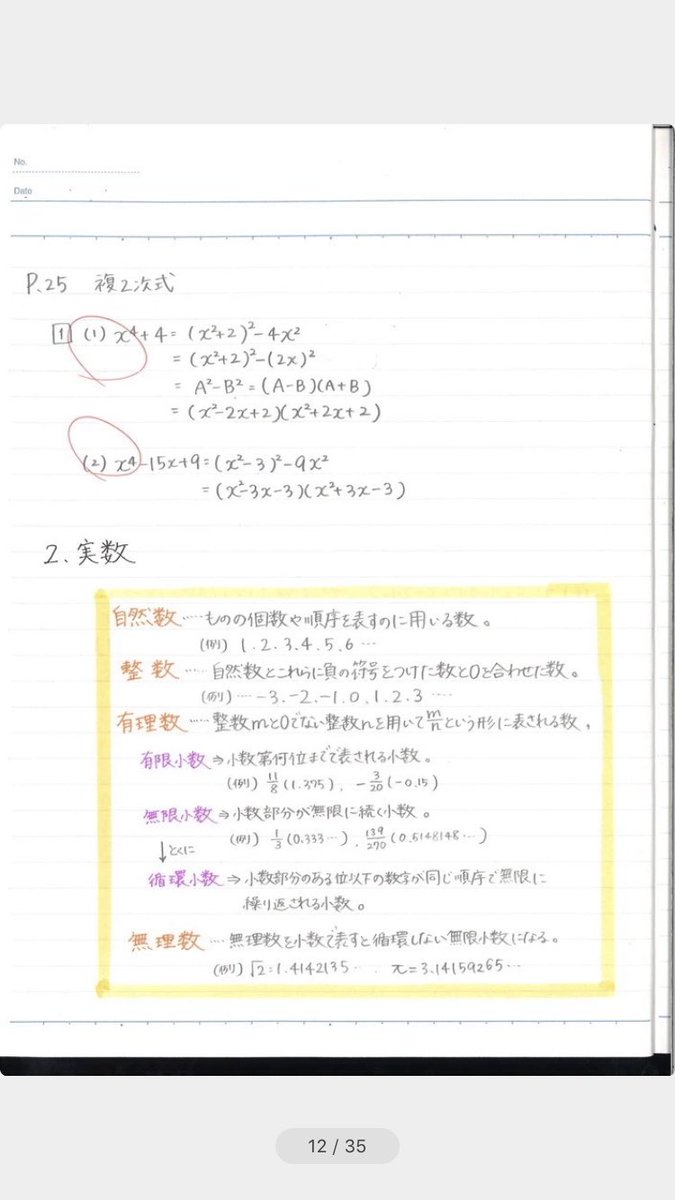 No.
Date
P.25 複2次式
1 (1) x⁴+4 = (x²+2)²-4x²
= (x²+2)²-(2x)²
= A²-B² = (A-B)(A+B)
= (x²-2x+2)(x²+2x+2)
(2) x⁴-15x+9 = (x²-3)²-9x²
= (x²-3x-3)(x²+3x-3)
2. 実数
自然数 ····· ものの個数や順序を表すのに用いる数。
(例) 1. 2. 3. 4. 5. 6 ···
整数 ····· 自然数とこれらに負の符号をつけた数と0を合わせた数。
(例) ···· -3. -2. -1. 0. 1. 2. 3 ····
有理数 ····· 整数mと0でない整数nを用いてm/nという形に表される数。
有限小数 ⇒ 小数第何位までで表される小数。
(例) 11/8 (1.375) . -3/20 (-0.15)
無限小数 ⇒ 小数部分が無限に続く小数。
↓とくに (例) 1/3 (0.333···) . 139/270 (0.5148148···)
循環小数 ⇒ 小数部分のある位以下の数字が同じ順序で無限に
繰り返される小数。
無理数 ···· 無理数を小数で表すと循環しない無限小数になる。
(例) √2 = 1.4142135··· π = 3.14159265···
12 / 35